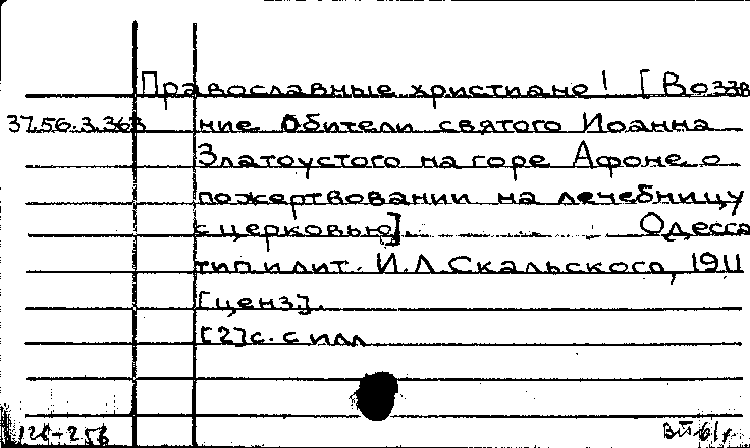 Православные христиане! [Воззва
37.56.3.363 ние Обители святого Иоанна
Златоустого на горе Афоне о
пожертвовании на лечебницу
с церковью]. Одесса
тип и лит. И.Л. Скальского, 1911
[ценз].
[2]с. с илл
126-256